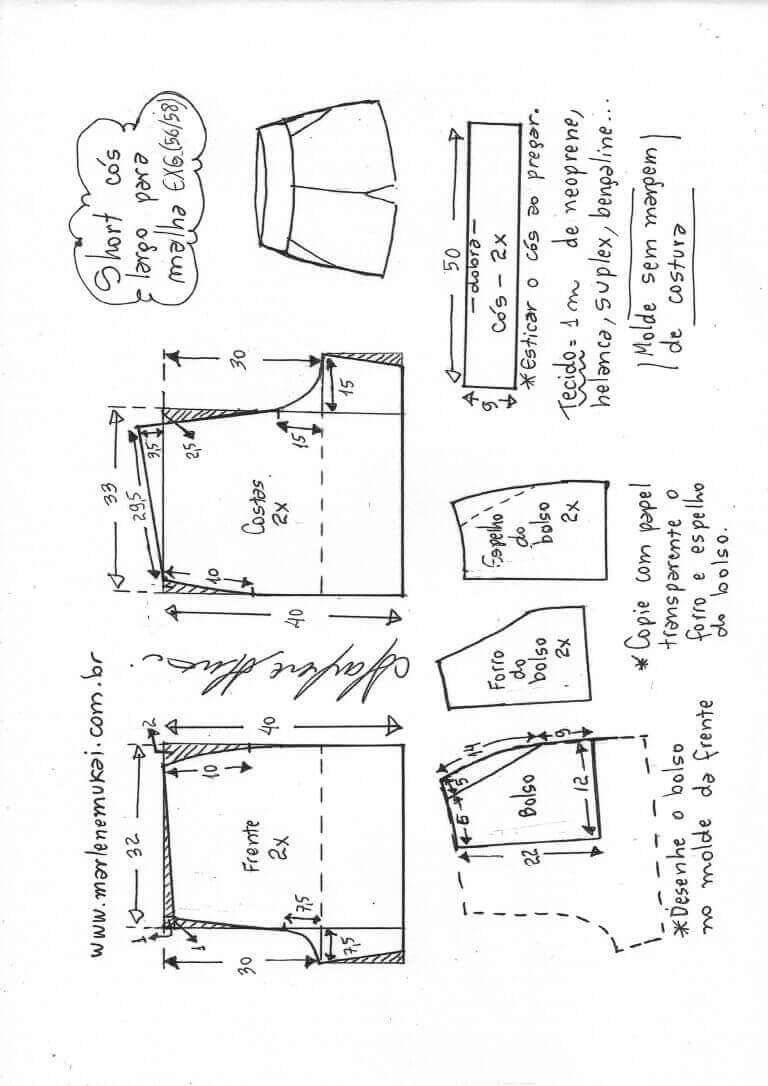 www.marlenemukai.com.br
Short cós
largo para
malha EXG(56/58)
32
1
1
2
10
40
30
7,5
7,5
Frente
2x
33
29,5
3,5
2,5
10
40
30
15
15
Costas
2x
14
9
5
6
12
22
Bolso
*Desenhe o bolso
no molde da frente
Forro
do
bolso
2x
Espelho
do
bolso
2x
*Copie com papel
transparente o
forro e espelho
do bolso.
50
9
-dobra-
cós - 2x
*Esticar o cós ao pregar.
Tecido = 1m de neoprene,
helanca, suplex, bengaline...
Molde sem margem
de costura